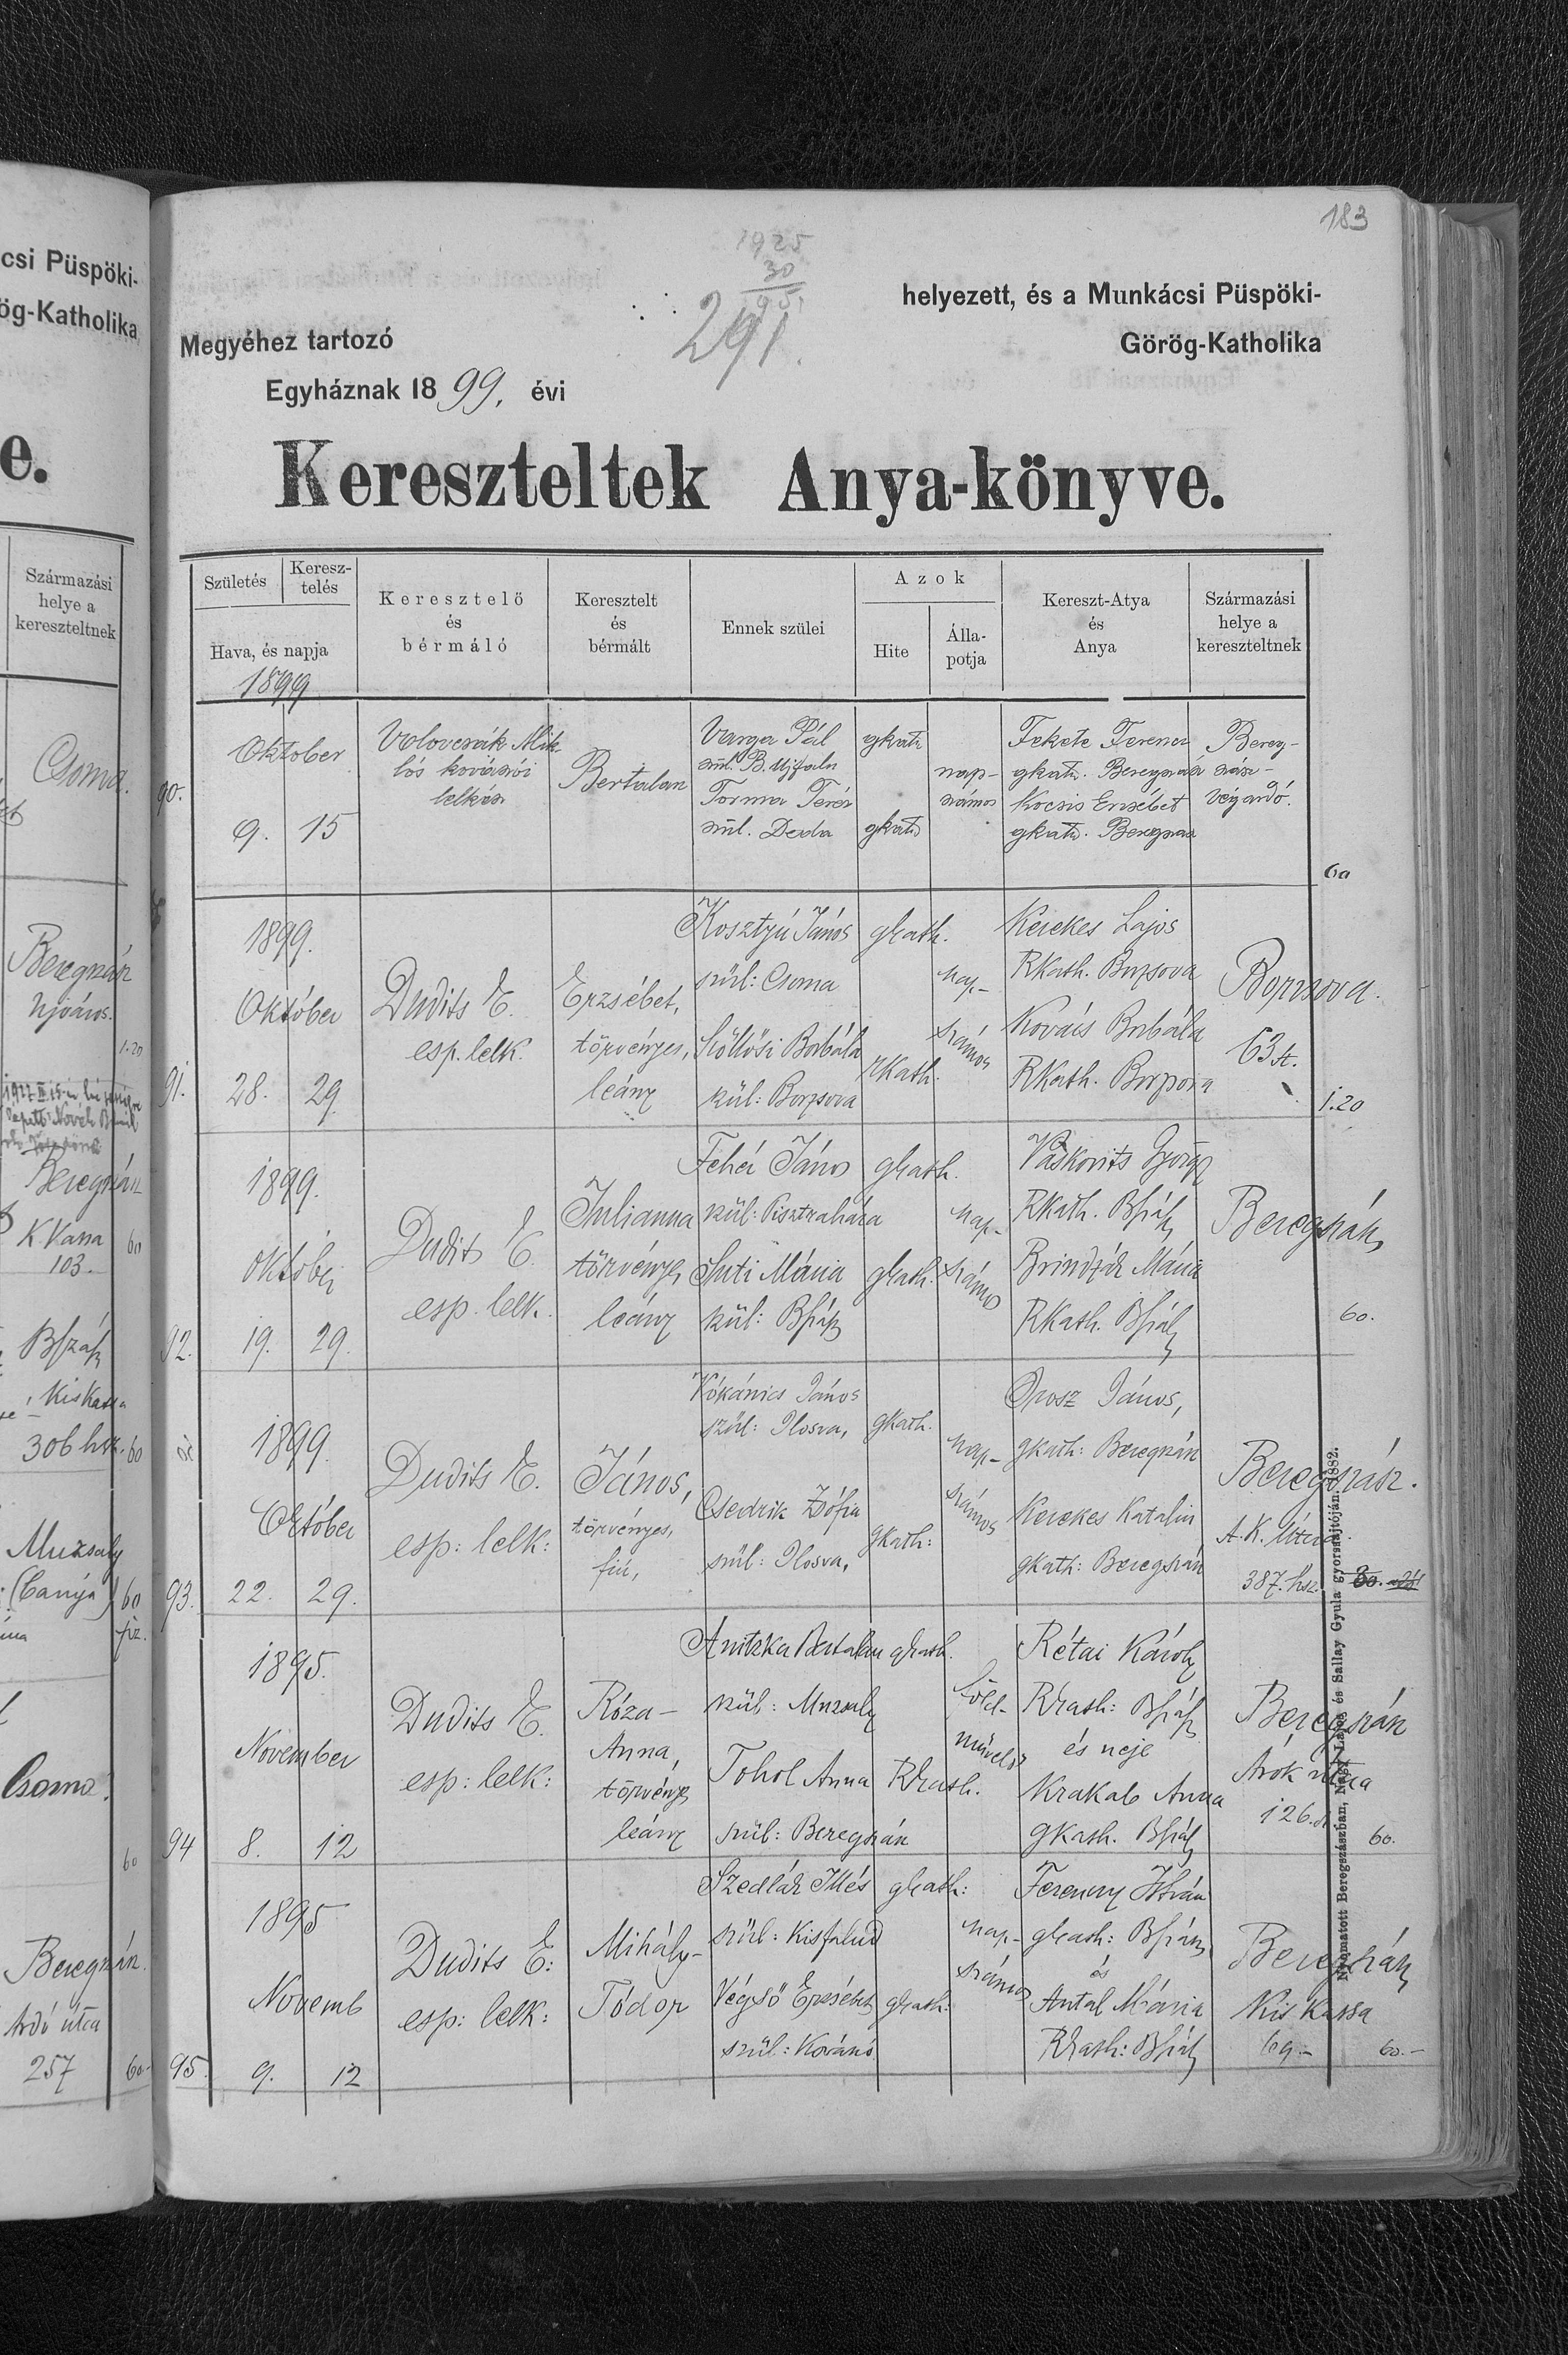 183
1925
30
95
291.
helyezett, és a Munkácsi Püspöki-
Megyéhez tartozó
Görög-Katholika
Egyháznak 1899. évi
Kereszteltek Anya-könyve.
Születés
Keresz-
telés
Hava, és napja
1899
Keresztelő
és
bérmáló
Keresztelt
és
bérmált
Ennek szülei
Azok
Hite
Álla-
potja
Kereszt-Atya
és
Anya
Származási
helye a
kereszteltnek
90.
Oktober
9. 15
Volovcsák Mik-
lós kovászói
lelkész
Bertalan
Varga Pál
szül. B. Ujfalu
Torma Teréz
szül. Deda
gkath
gkath
nap-
számos
Fekete Ferencz
gkath. Beregszász
Kocsis Erzsébet
gkath. Beregszász
Bereg-
szász-
Végardó.
60
91.
1899.
Október
28. 29
Dudits E.
esp. lelk.
Erzsébet,
törvényes,
leány
Kosztyú János
szül: Csoma
Szöllősi Borbála
szül: Borzsova
gkath.
rkath.
nap-
számos
Kerekes Lajos
Rkath. Borzsova
Kovács Borbála
Rkath. Borzsova
Borzsova.
63 sz.
1.20
92.
1899.
Október
19. 29.
Dudits E.
esp. lelk.
Julianna
törvényes
leány
Fehér János
szül: Pisztraháza
Suti Mária
szül: Bszász
gkath.
gkath.
nap-
számos
Váskovits György
Rkath. Bszász
Brindzák Mária
Rkath. Bszász
Beregszász
60.
93.
1899.
Október
22. 29.
Dudits E.
esp: lelk:
János,
törvényes,
fiú,
Kókánics János
szül: Ilosva,
Csedrik Zsófia
szül: Ilosva,
gkath.
gkath:
nap-
számos
Orosz János,
gkath: Beregszász
Kerekes Katalin
gkath: Beregszász
Beregszász.
A. K. útcza.
387. hsz.
94
1895.
November
8. 12
Dudits E.
esp: lelk:
Róza-
Anna,
törvényes
leány
Anitzka Bertalan
szül: Muzsaly
Tohol Anna
szül: Beregszász
gkath.
Rkath.
föld-
művelő
Rétai Károly
Rkath: Bszász
és neje
Krakab Anna
gkath. Bszász
Beregszász
Árok utcza
126.
60.
95.
1895
Novemb
9. 12
Dudits E:
esp: lelk:
Mihály-
Tódor
Szedlár Illés
szül: Kisfalud
Végső Erzsébet
szül: Kovászó
gkath:
gkath:
nap-
számos
Ferenczy István
gkath: Bszász
és
Antal Mária
Rkath: Bszász
Beregszász
Kis Kassa
69-
60.-
Nyomatott Beregszászban, Nagy Lajos és Sallay Gyula gyorssajtóján. 1882.
csi Püspöki-
ög-Katholika
e.
Származási
helye a
kereszteltnek
Csoma.
Beregszász
Ujváros.
1.20
Beregszász
K. Kassa
103.
60
Bszász
Kiskassa
306 hsz.
60
Muzsaly
(tanya)
60
fiz.
Csoma.
60
Beregszász.
Ardó útcza
257
60-